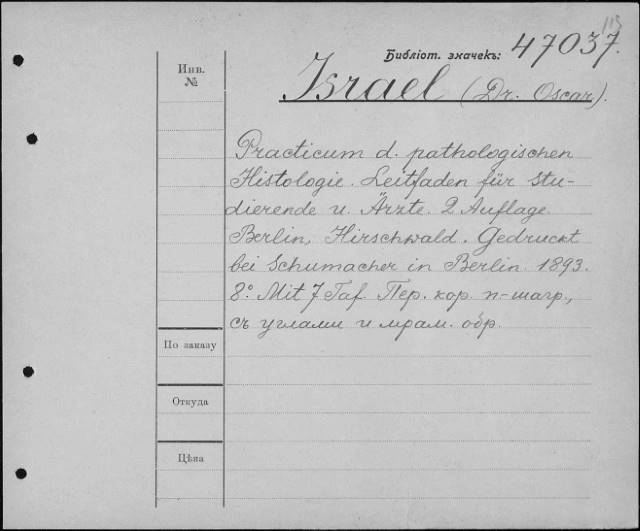 113
Библіот. значекъ: 47037.
Инв.
№
Israel (Dr. Oscar).
Practicum d. pathologischen
Histologie. Leitfaden für Stu-
dierende u. Ärzte. 2 Auflage.
Berlin, Hirschwald. Gedruckt
bei Schumacher in Berlin. 1893.
8º. Mit 7 Taf. Пер. кор. п-шагр.,
съ углами и мрам. обр.
По заказу
Откуда
Цѣна